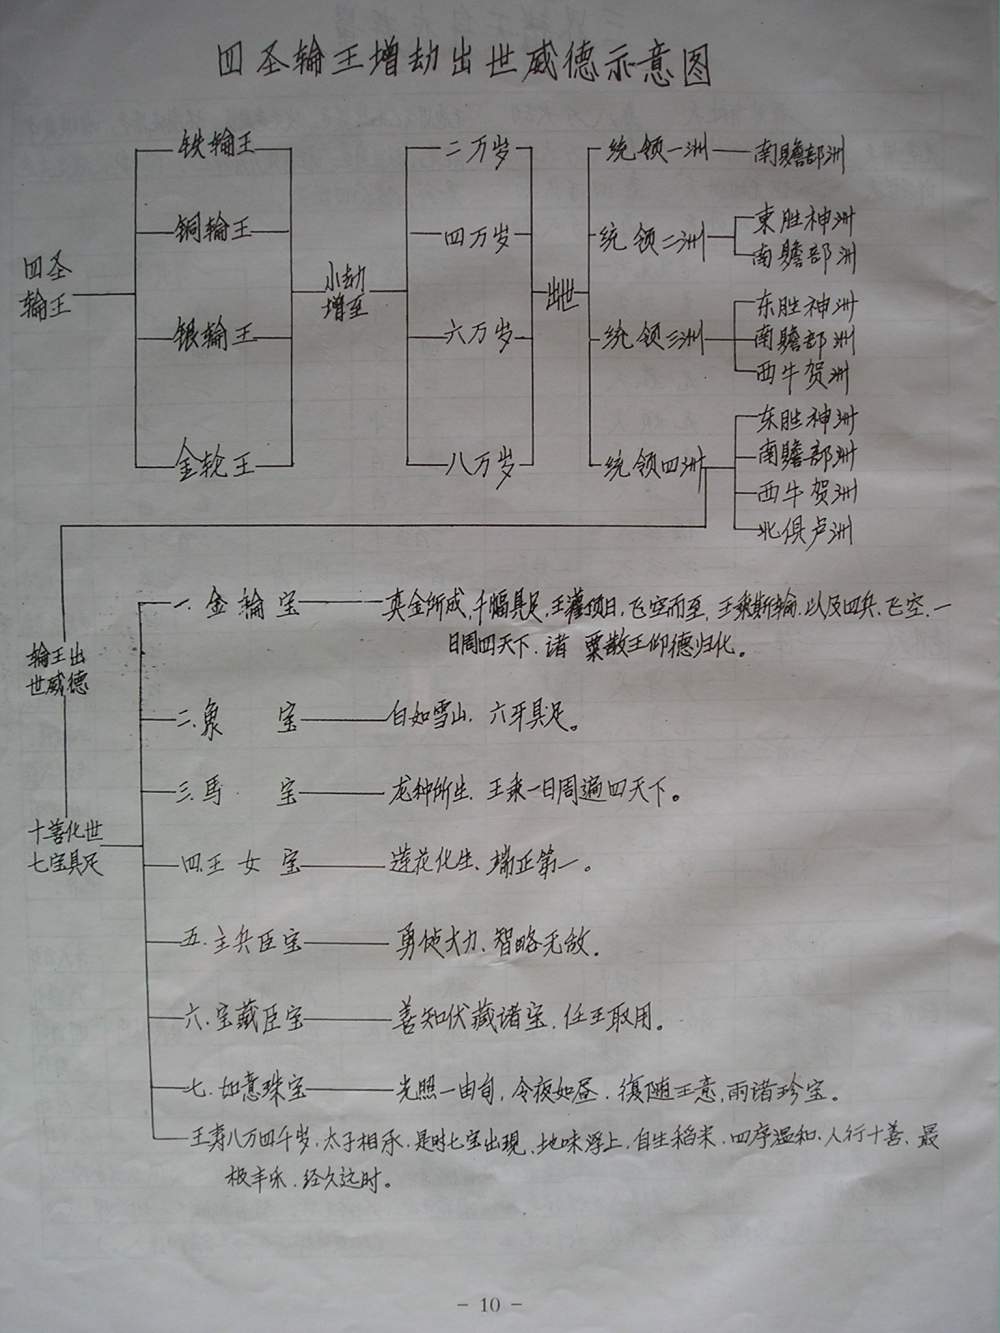 四圣轮王增劫出世威德示意图
铁轮王 二万岁 统领一洲 南瞻部洲
铜轮王 四万岁 统领二洲 東胜神洲
南瞻部洲
四圣
轮王
小劫
增至
出世
银轮王 六万岁 统领三洲 东胜神洲
南瞻部洲
西牛贺洲
金轮王 八万岁 统领四洲 东胜神洲
南瞻部洲
西牛贺洲
北俱卢洲
轮王出
世威德
十善化世
七宝具足
一.金轮宝 真金所成,千幅具足,王灌顶日,飞空而至,王乘斯轮.以及四兵.飞空.一
日周四天下.诸 粟散王仰德归化。
二.象宝 白如雪山.六牙具足。
三.馬宝 龙种所生.王乘一日周遍四天下。
四.王女宝 莲花化生、端正第一。
五.主兵臣宝 勇侦大力、智略无敌.
六.宝藏臣宝 善知伏藏诸宝.任王取用。
七.如意珠宝 光照一由旬,令夜如昼.復随王意,雨诸珍宝。
王寿八万四千岁.太子相承.是时七宝出现.地味浮上.自生稻米.四序温和.人行十善、最
极丰乐.经久远时。
- 10 -